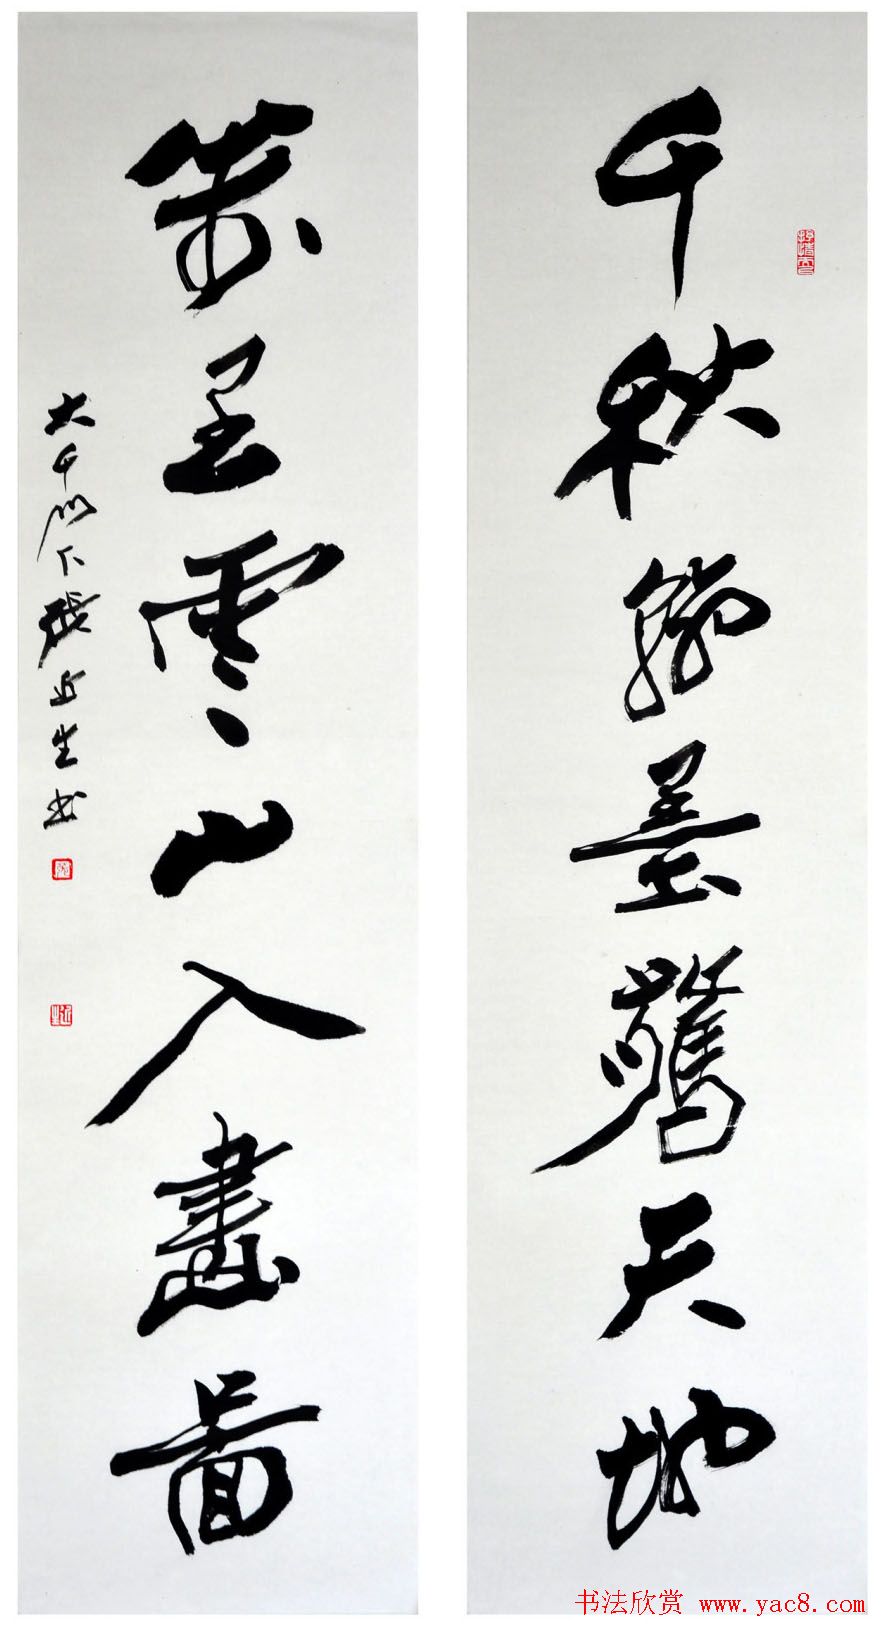 千秋翰墨驚天地
萬里雲山入畫圖
大千門下張近生書
书法欣赏 www.yac8.com